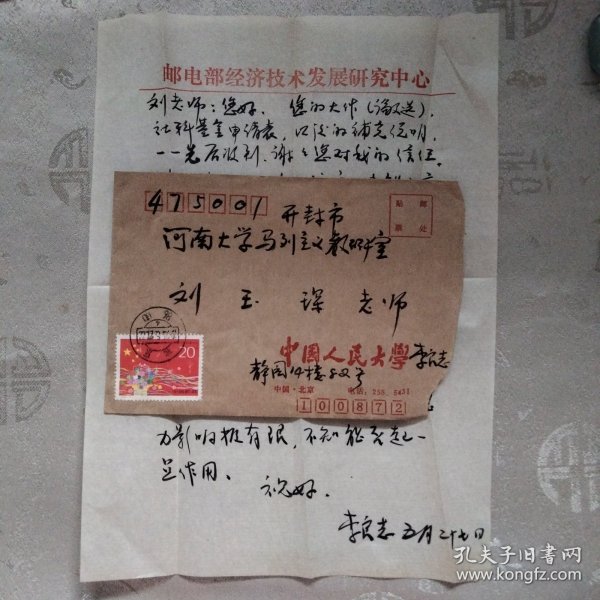 邮电部经济技术发展研究中心
刘老师：您好。您的大作（论文选），
社科基金申请表，以后的补充说明，
一一先后收到，谢谢您对我的信任。
475001
开封市
贴邮
票处
河南大学马列主义教研室
刘玉琛老师
20
中国人民大学 李良志
静园14楼82号
中国·北京 电话：258.5431
100872
力影响极有限，不知能否起一
点作用。
祝好。
李良志 五月二十七日
孔夫子旧书网
www.kongfz.com